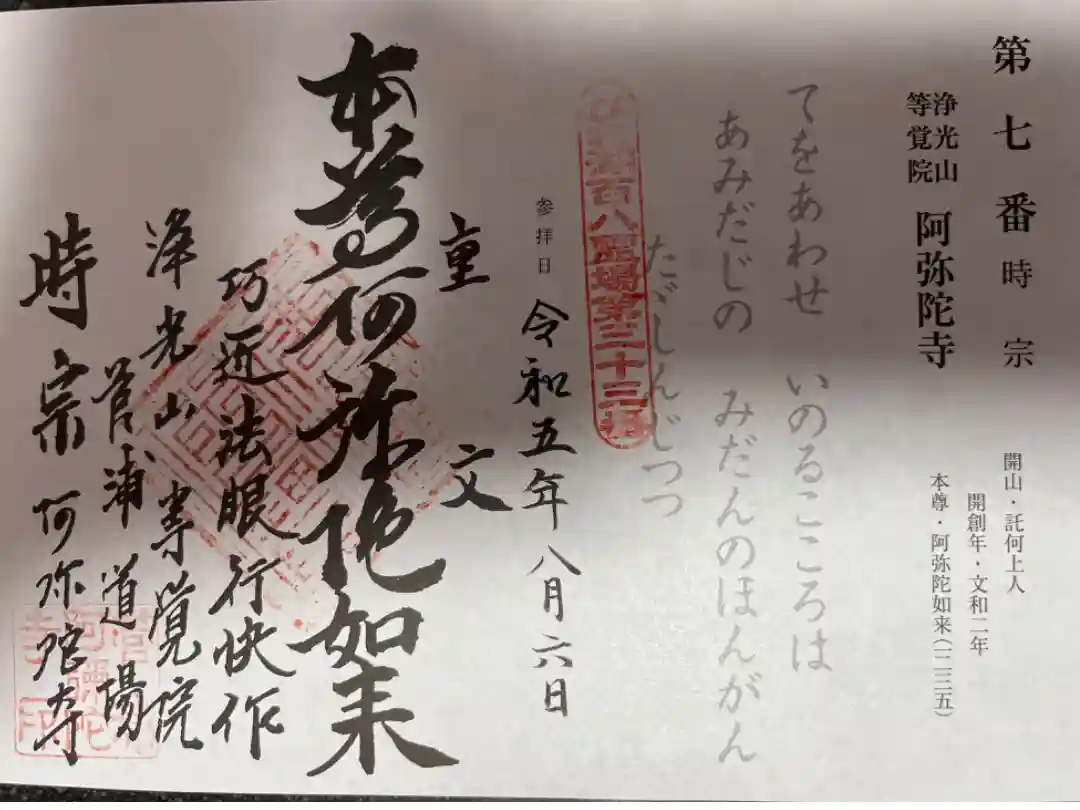 第七番 時宗
浄光山
等覚院
阿弥陀寺
開山・託何上人
開創年・文和二年
本尊・阿弥陀如来(一二三五)
てをあわせ いのるこころは
あみだじの みだんのほんがん
たがしんじつつ
百八霊場第三十三番
参拝日
令和五年八月六日
重文
本尊阿弥陀如来
巧匠法眼行快作
浄光山等覚院
菅浦道場
時宗阿弥陀寺